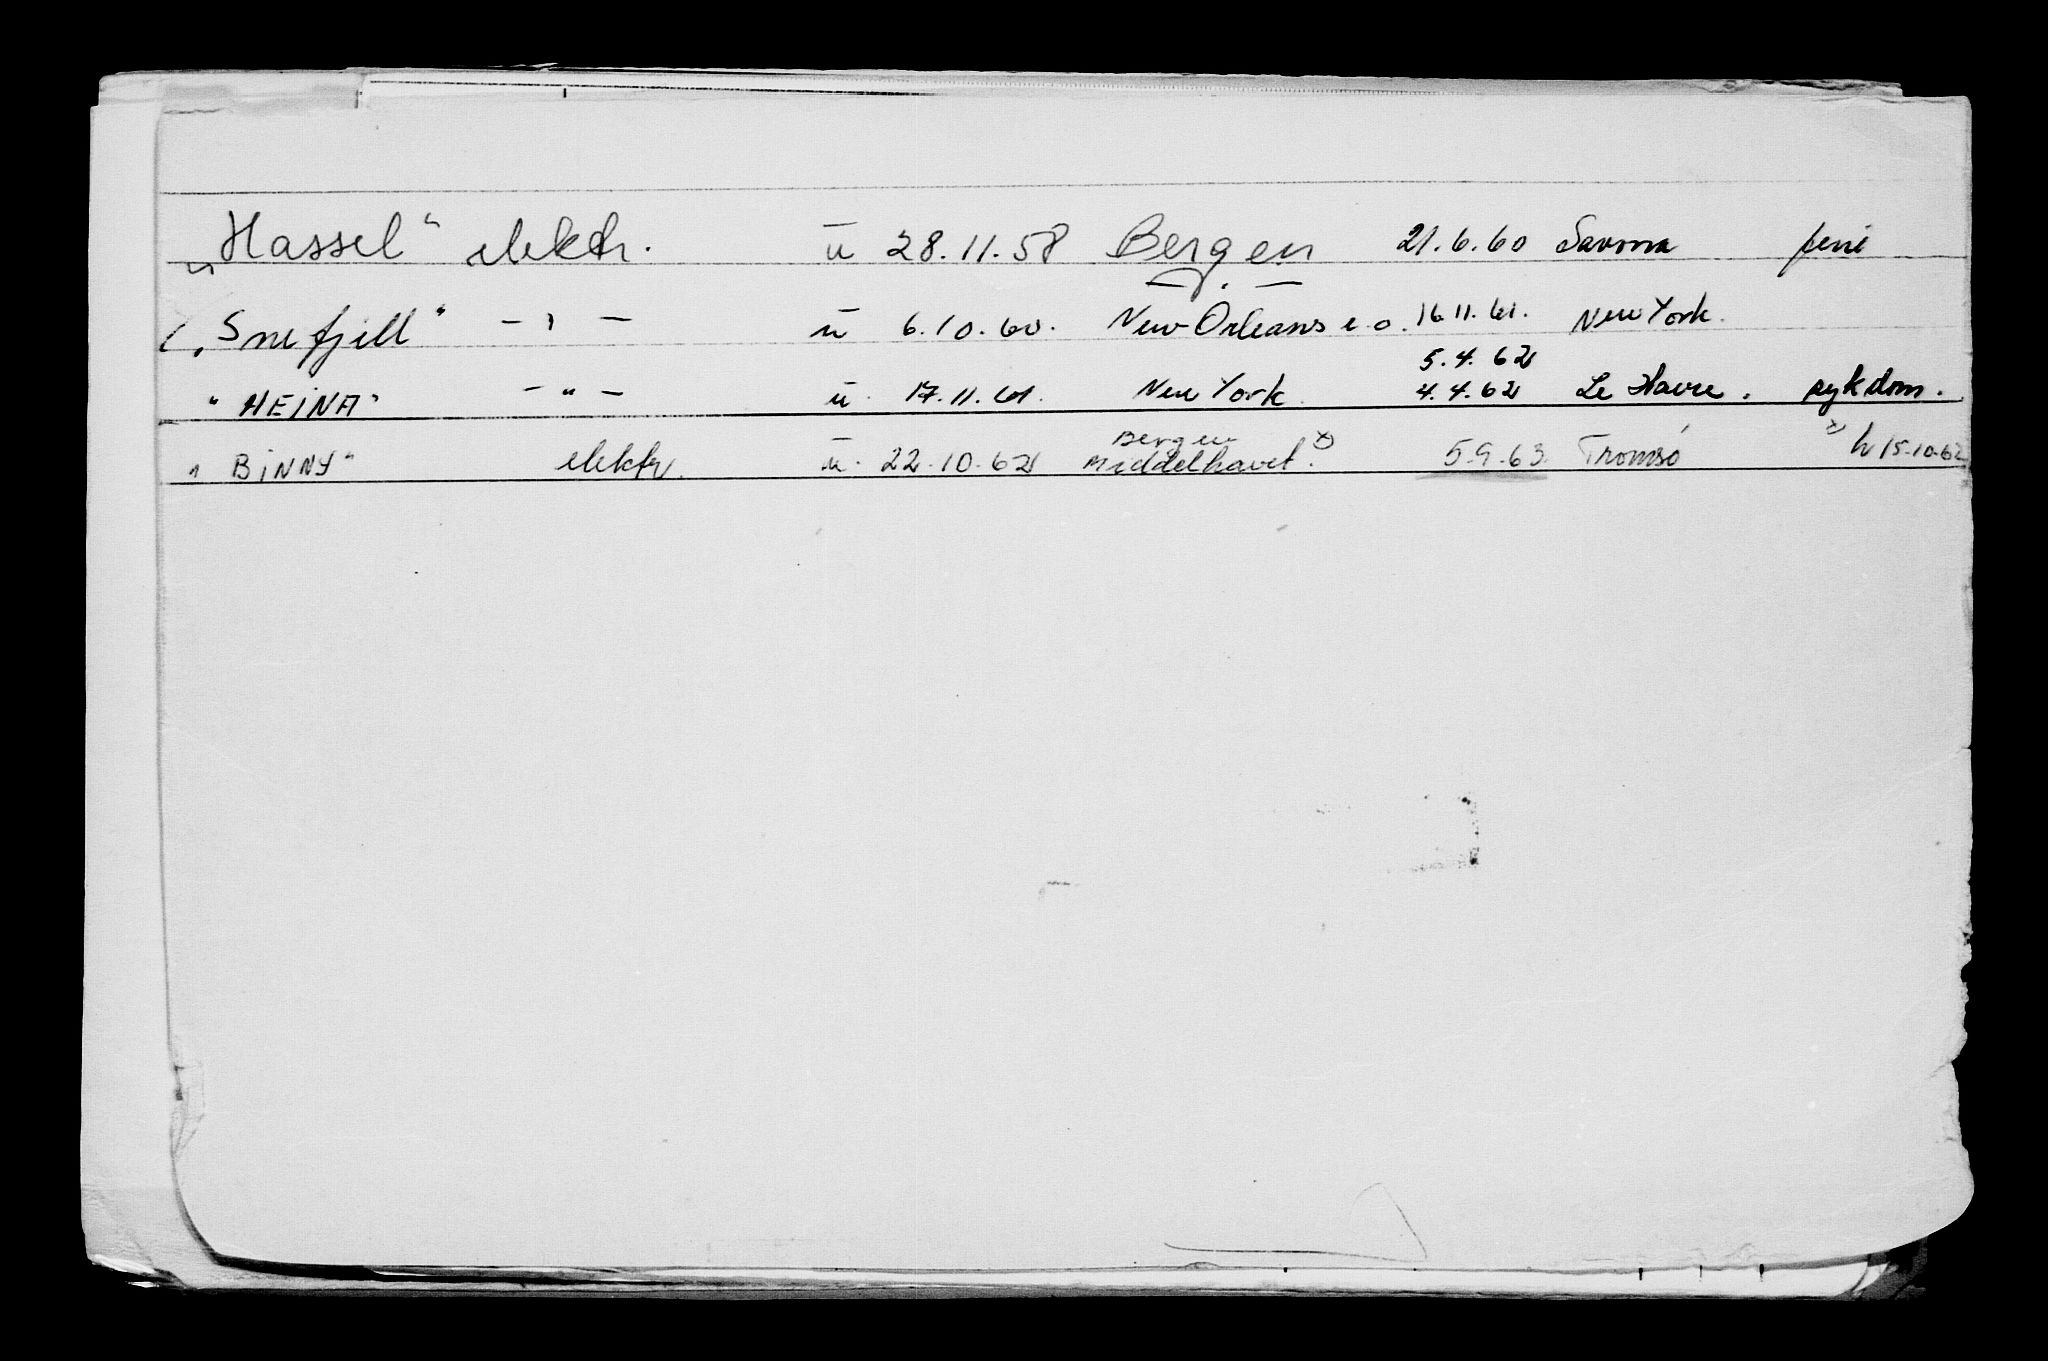 „Hassel“ elektr. ū 28.11.58 Bergen 21.6.60 Savona ferie
„Snefjell“ - " - ū 6.10.60. New Orleans e.o. 16.11.61. New York.
5.4.62
"HEiNA" - " - ū. 17.11.61. New York. 4.4.62 Le Havre. sykdom.
Bergen
"BiNNY" elektr. ū. 22.10.62 Middelhavet. x) 5.9.63. Tromsø x) h 15.10.62